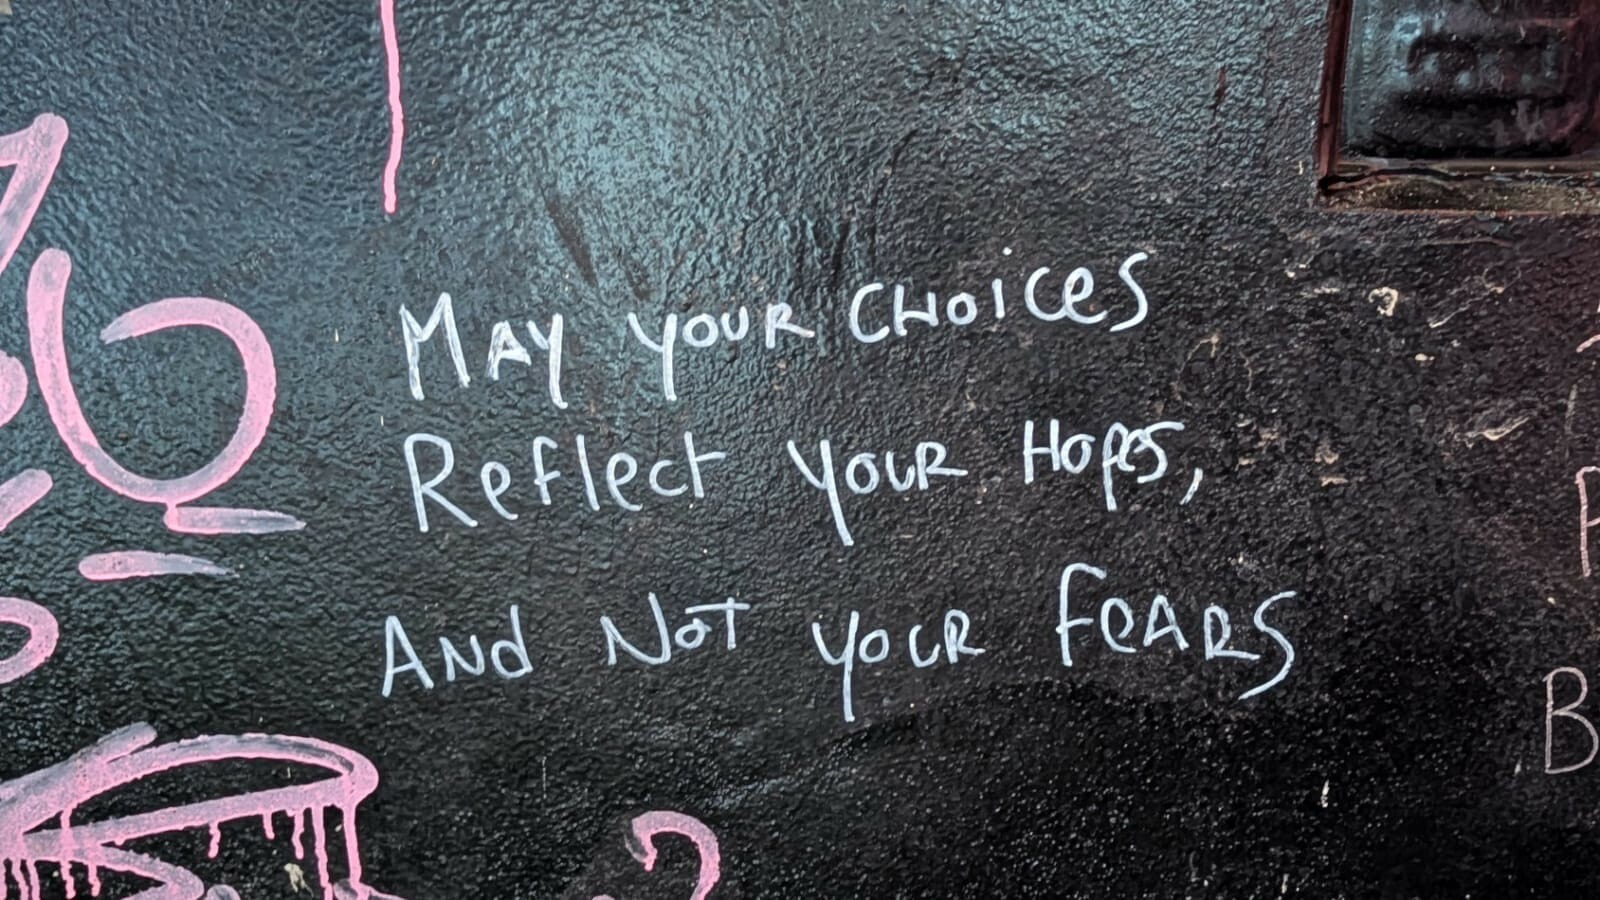 May your choices
Reflect your Hopes,
And Not your fears